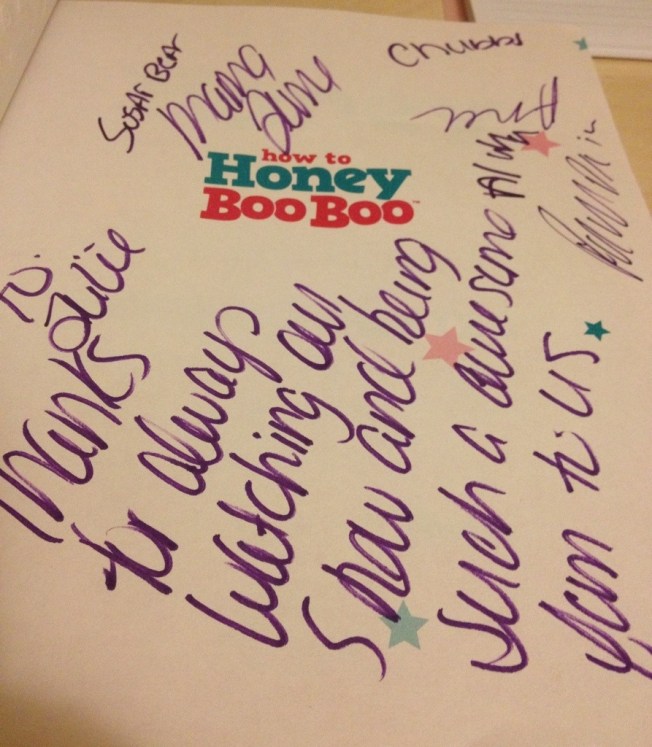 SUGAR BEAR
Mama
June
Chubbs
how to
Honey
Boo Boo
™
Alana
Pumpkin
To:
Julie
Thanks
for always
watching our
Show and being
Such a awesome
fan to us.